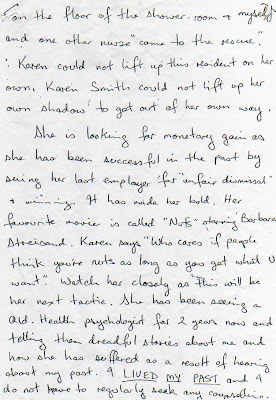 on the floor of the shower-room & myself
and one other nurse "came to the rescue".
∴ Karen could not lift up this resident on her
own. Karen Smith could not lift up her
own shadow' to get out of her own way.
She is looking for monetary gain as
she has been successful in the past by
suing her last employer for "unfair dismissal"
& winning. It has made her bold. Her
favourite movie is called "Nuts" starring Barbara
Streisand. Karen says "Who cares if people
think you're nuts as long as you get what U
want". Watch her closely as This will be
her next tactic. She has been seeing a
Qld. Health psychologist for 2 years now and
telling them dreadful stories about me and
how she has suffered as a result of hearing
about my past. I LIVED MY PAST and I
do not have to regularly seek any counselling.